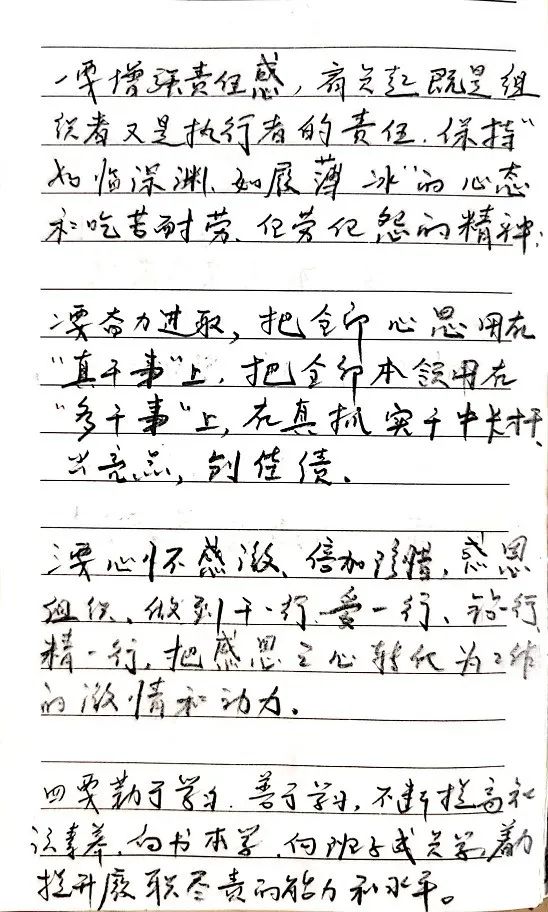 一要增强责任感，肩负起既是组
织者又是执行者的责任.保持“
如临深渊、如履薄冰”的心态
和吃苦耐劳、任劳任怨的精神；
二要奋力进取，把全部心思用在
“真干事”上.把全部本领用在
“多干事”上，在真抓实干中
出亮点，创佳绩。
三要心怀感激、倍加珍惜.感恩
组织、做到干一行、爱一行、钻一行
精一行.把感恩之心转化为工作
的激情和动力。
四要勤于学习.善于学习，不断提高知
识素养.向书本学.向班子成员学
提升履职尽责的能力和水平。